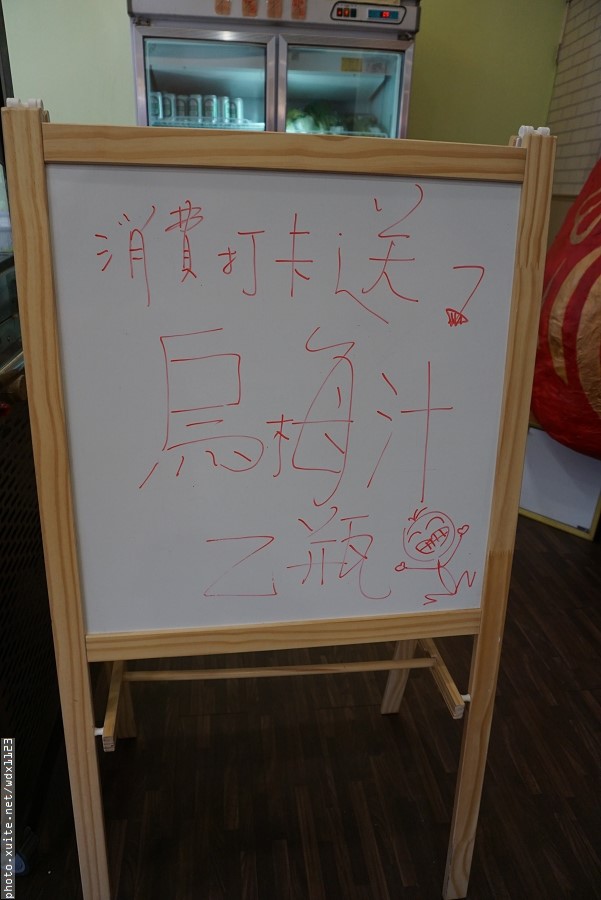 消費打卡送
烏梅汁
乙瓶
photo.xuite.net/wdx1123